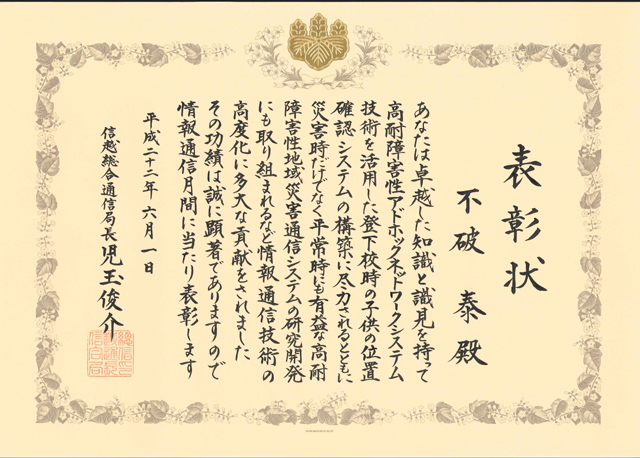 表彰状
不破泰殿
あなたは卓越した知識と識見を持って
高耐障害性アドホックネットワークシステム
技術を活用した登下校時の子供の位置
確認システムの構築に尽力されるとともに
災害時だけでなく平常時にも有益な高耐
障害性地域災害通信システムの研究開発
にも取り組まれるなど情報通信技術の
高度化に多大な貢献をされました
その功績は誠に顕著でありますので
情報通信月間に当たり表彰します
平成二十二年六月一日
信越総合通信局長 児玉俊介